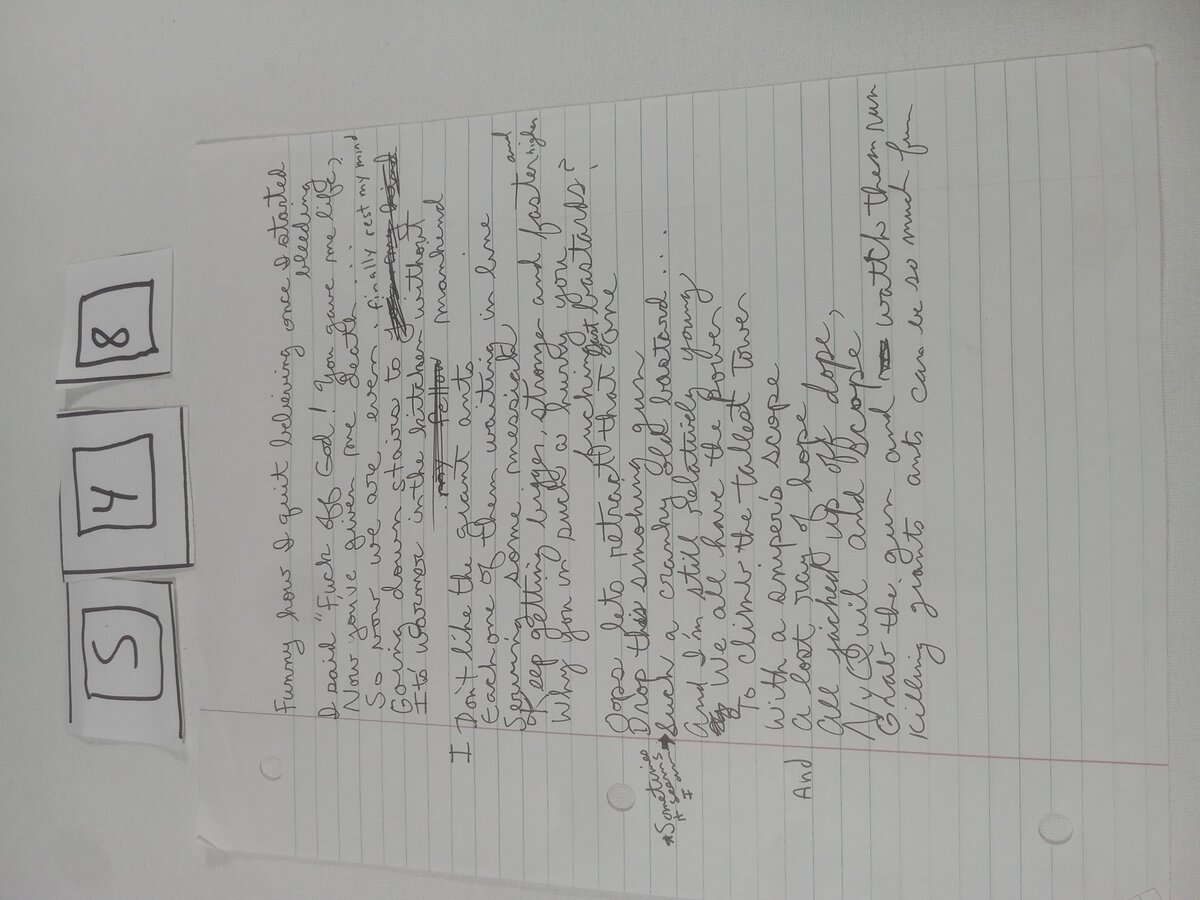 5 4 8
Funny how I quit believing once I started
bleeding
I said "Fuck off God! You gave me life,
Now you've given me death...
So now we are even. finally rest my mind
Going down stairs to
It's warmer in the kitchen without
my fellow manhend
I Don't like the giant ants
Each one of them waiting in line
Serving some messiah
Keep getting bigger, stronger and faster and higher
Why you in such a hurry you
fucking fast bastards?
Oops lets retract that one
Drop the smoking gun
*Sometimes it seems I am
Such a cranky old bastard...
And I'm still relatively young
We all have the power
To climb the tallest tower
With a sniper's scope
And a lost ray of hope
All jacked up off dope,
NyQuil and Scope
Grab the gun and watth them run
Killing giants ants can be so much fun